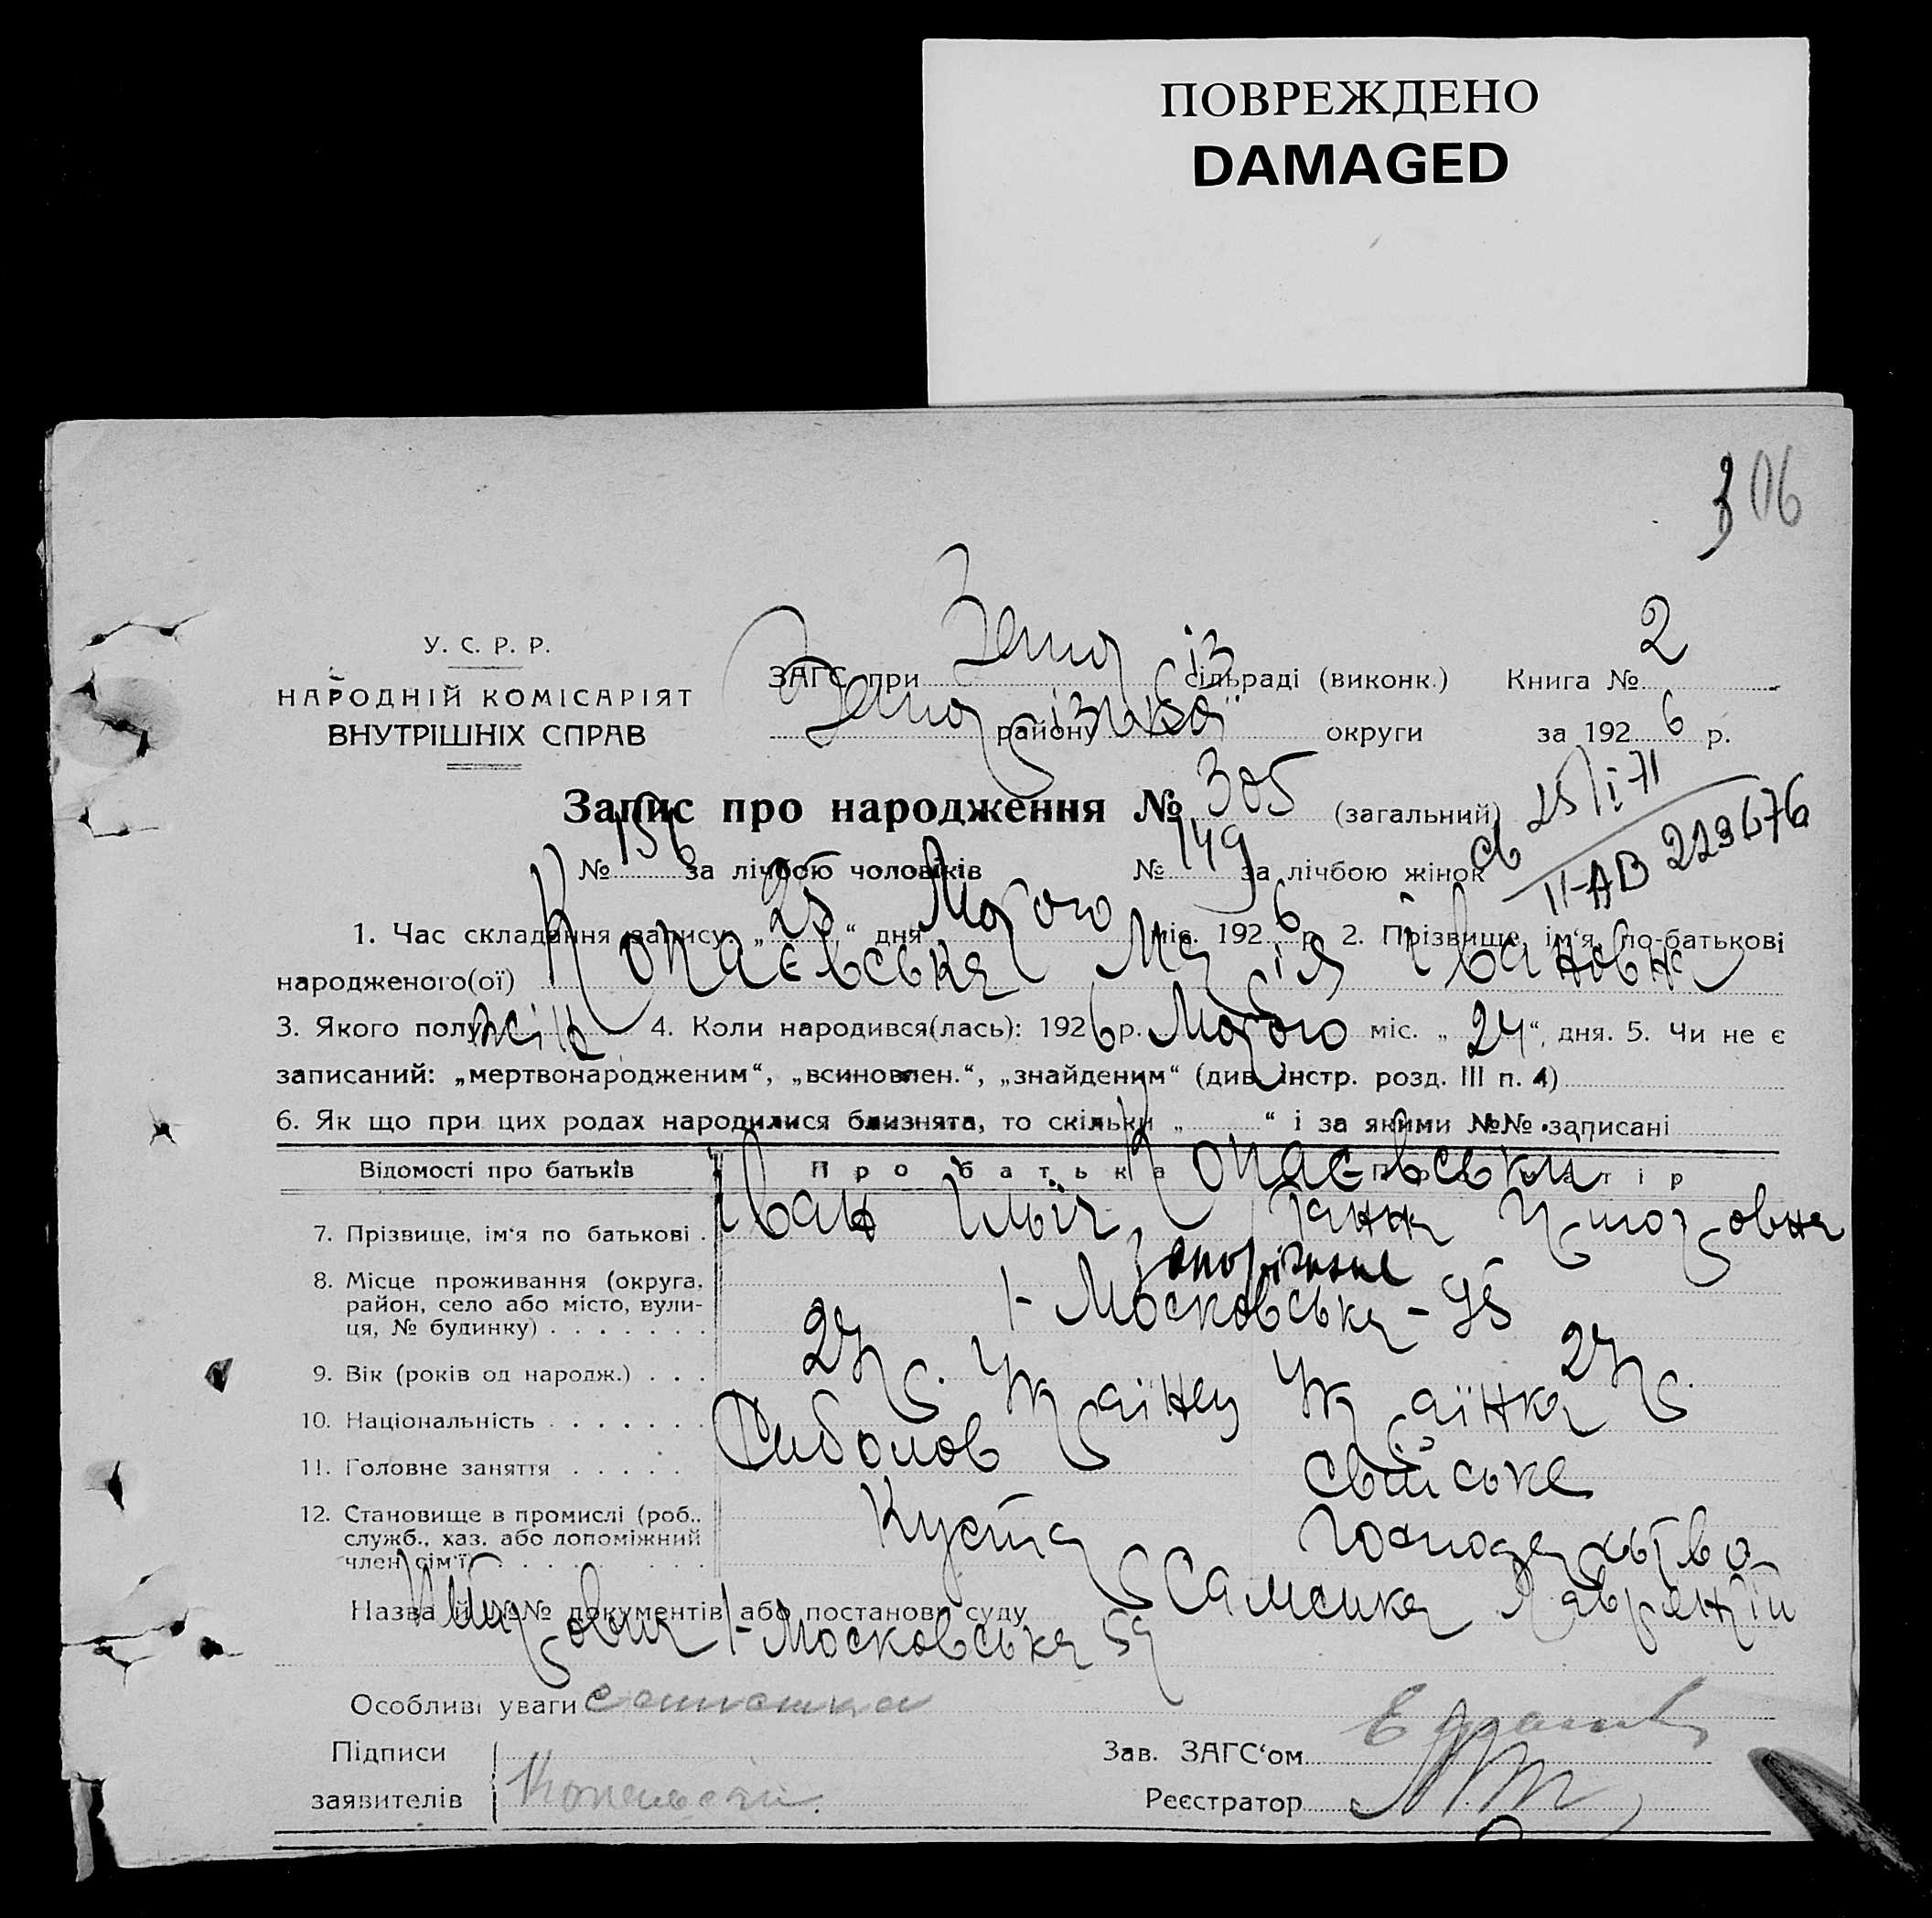 ПОВРЕЖДЕНО
DAMAGED
306
У. С. Р. Р.
НАРОДНІЙ КОМІСАРІЯТ
ВНУТРІШНІХ СПРАВ
ЗАГС при сільраді (виконк.) Книга № 2
району округи за 1926 р.
Запис про народження № 305 (загальний)
25/I-71
II-АВ 223676
№ 156 за лічбою чоловіків № 149 за лічбою жінок
1. Час складання запису „25“ дня Мартого міс. 1926 р. 2. Прізвище, ім‘я, по-батькові
народженого(ої) Копаєвська Марія Івановна
3. Якого полу жін 4. Коли народився(лась): 1926 р. Мартого міс. „24“, дня. 5. Чи не є
записаний: „мертвонародженим“, „всиновлен.“, „знайденим“ (див. Інстр. розд. III п. 4)
6. Як що при цих родах народилися близнята, то скільки „ “ і за якими №№ записані
Відомості про батьків Про батька Про матір
Копаєвськи
7. Прізвище, ім‘я по батькові . Іван Ільіч Ганна
8. Місце проживання (округа, район, село або місто, вули-ця, № будинку) . . . . . . . Запоріжжє
1-Московська-95
9. Вік (років од народж.) . . . 27 р. 27 р.
10. Національність . . . . . . . Українец Українка
11. Головне заняття . . . . . свійське
12. Становище в промислі (роб., служб., хаз. або допоміжний член сім‘ї) . . . . . . . Кустар господарство
Назва й №№ документів або постанови суду Лаврентій
1-Московська 59
Особливі уваги
Підписи
заявителів
Зав. ЗАГС‘ом
Реєстратор